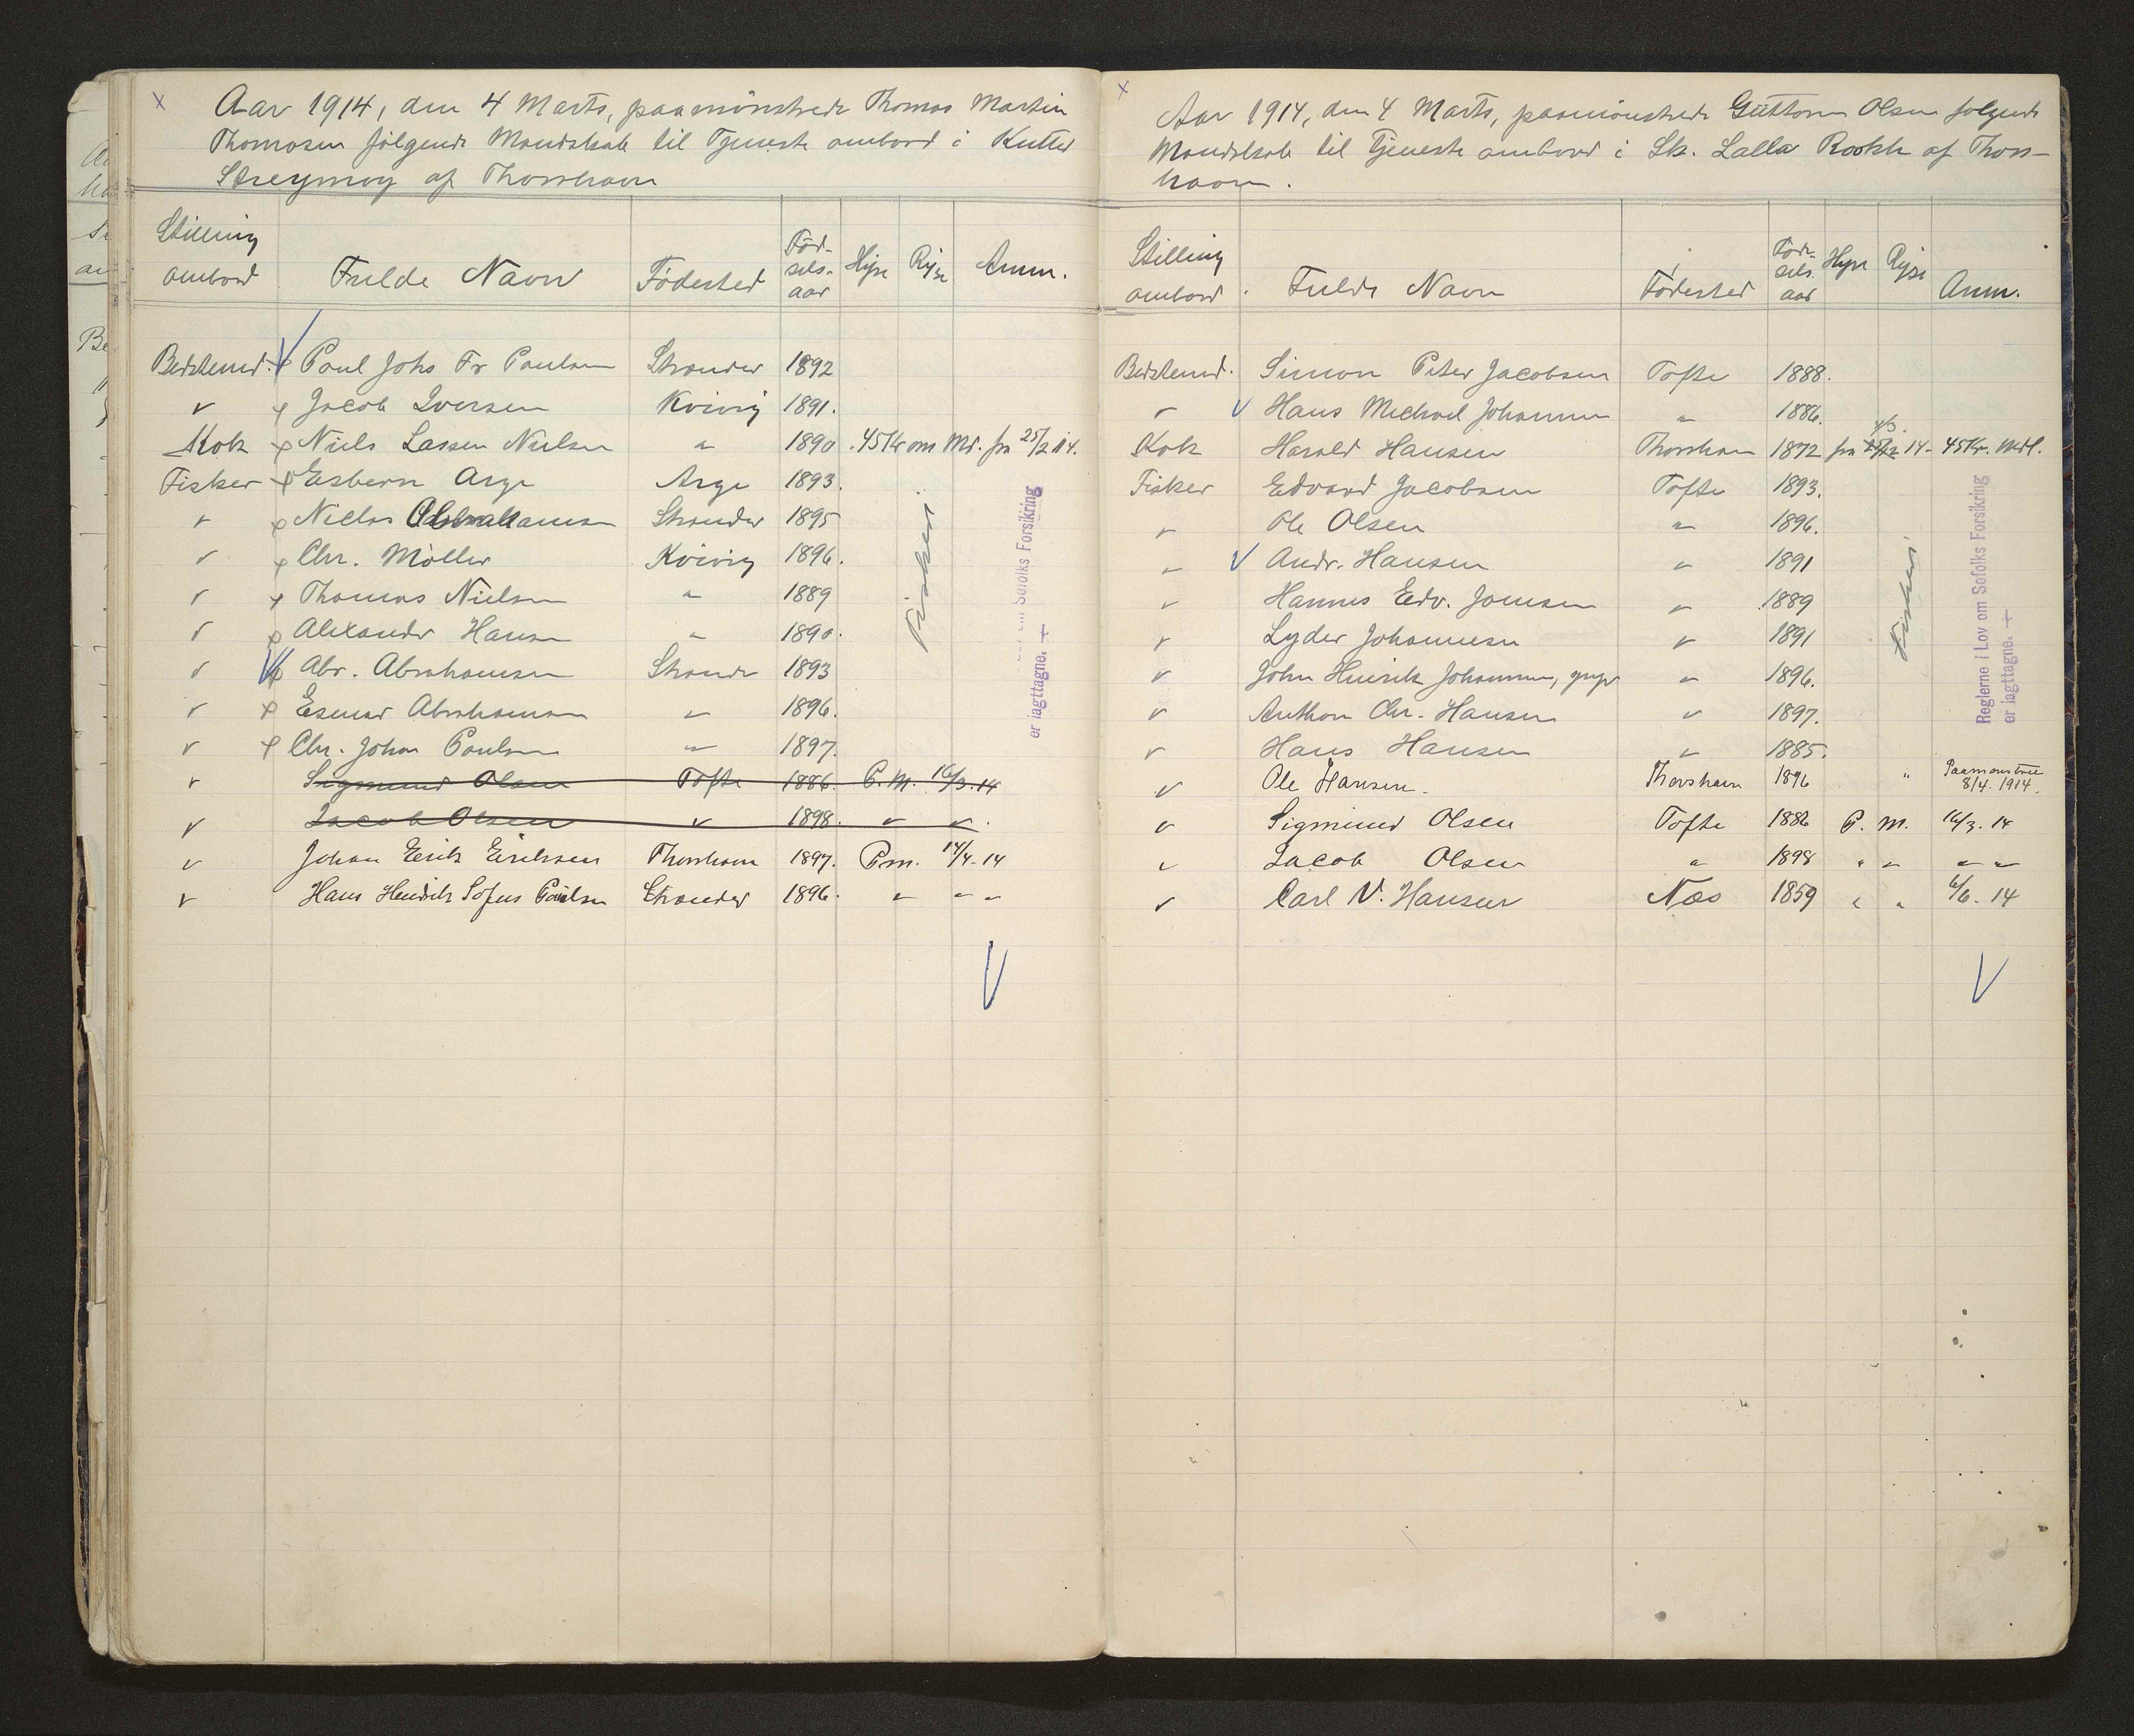 Aar 1914, den 4 Marts, paamönstrede Thomas Martin
Thomasen følgende Mandskab til Tjeneste ombord i Kutter
Streymoy af Thorshavn
Stilling ombord Fulde Navn Födested Föd-sels-aar Hyre Rejse Anm.
Bedstemd. Poul Johs Fr Poulsen Strender 1892
" Jacob Iversen Kvivig 1891.
Kok Niels Lassen Nielsen " 1890. 45 Kr om Md. fra 25/2 14.
Fisker Esbern Arge Arge 1893.
" Niclas Abrahamsen Strender 1895
" Chr. Möller Kvivig 1896.
" Thomas Nielsen " 1889
" Alexander Hansen " 1890.
" Abr. Abrahamsen Strender 1893
" Esmar Abrahamsen " 1896.
" Chr. Johan Poulsen " 1897.
" Sigmund Olsen Tofte 1886. P.M. 16/3.14
" Jacob Olsen " 1898. " "
" Johan Erik Eriksen Thorshavn 1897. P.m. 14/4-14
" Hans Hendrik Sofus Poulsen Strender 1896. " " "
Fiskeri
Søfolks Forsikring
er iagttagne. +
Aar 1914, den 4 Marts, paamönstrede Guttorm Olsen følgende
Mandskab til Tjeneste ombord i Sk. Lalla Rookh af Thors-
havn.
Stilling ombord Fulde Navn Födested Föd-sels-aar Hyre Rejse Anm.
Bedstemd. Simon Peter Jacobsen Tofte 1888.
" Hans Michael Johannesen " 1886.
Kok Harald Hansen Thorshavn 1872 fra 25/2 4/3. 14- 45 Kr. Mdl.
Fisker Edvard Jacobsen Tofte 1893.
" Ole Olsen " 1896.
" Andr. Hansen " 1891
" Hannes Edv. Joensen " 1889
" Lyder Johannesen " 1891
" John Hinrik Johannesen, yngr " 1896.
" Anthon Chr. Hansen " 1897.
" Hans Hansen " 1885.
" Ole Hansen. Thorshavn 1896 " Paamönstret 8/4. 1914.
" Sigmund Olsen Tofte 1886 P. M. 16/3. 14
" Jacob Olsen " 1898 " " " "
" Carl V. Hansen Næs 1859 " " 6/6. 14
Fiskeri
Reglerne i Lov om Søfolks Forsikring
er iagttagne. +